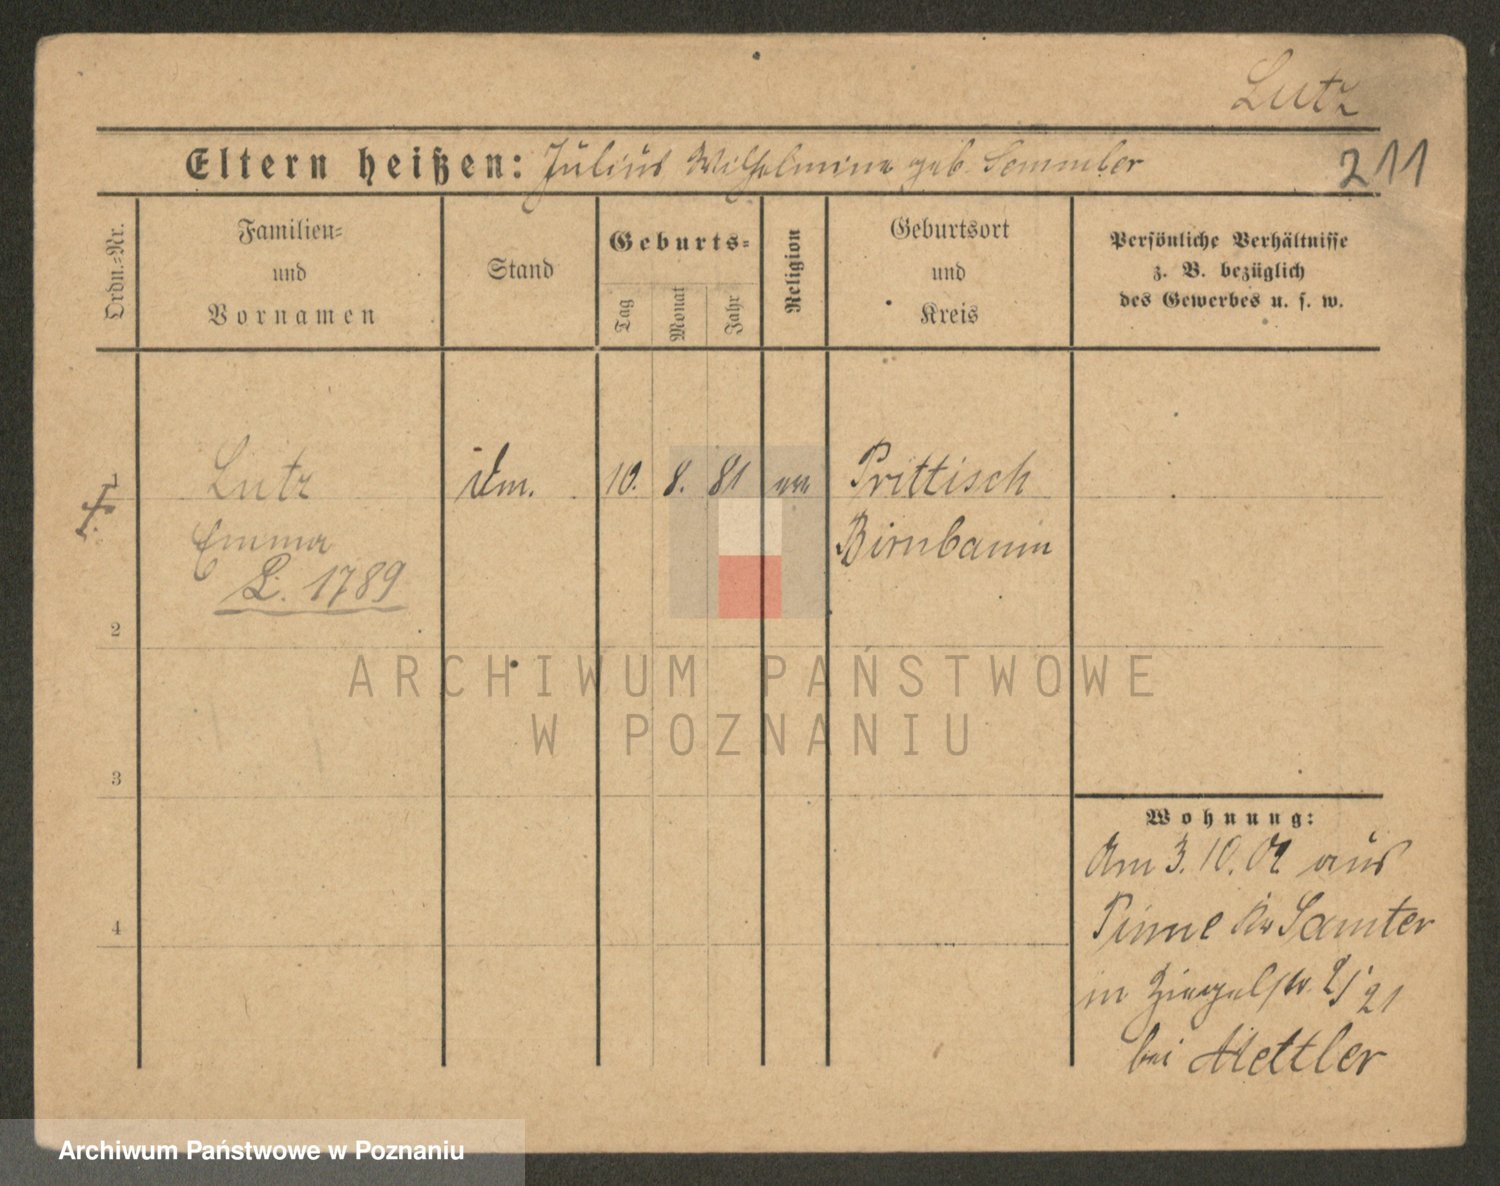 Lutz
Eltern heißen: Julius Wilhelmine geb. Semmler
211
Ordn.-Nr.
Familien-
und
Vornamen
Stand
Geburts-
Tag
Monat
Jahr
Religion
Geburtsort
und
Kreis
Persönliche Verhältnisse
z. B. bezüglich
des Gewerbes u. s. w.
1
Lutz
10. 8. 81
Prittisch
Emma
Birnbaum
L. 1789
2
ARCHIWUM PAŃSTWOWE
W POZNANIU
3
Wohnung:
Am 3.10.02 aus
Pinne Kr Samter
4
in Ziegelstr. 21
bei Mettler
Archiwum Państwowe w Poznaniu